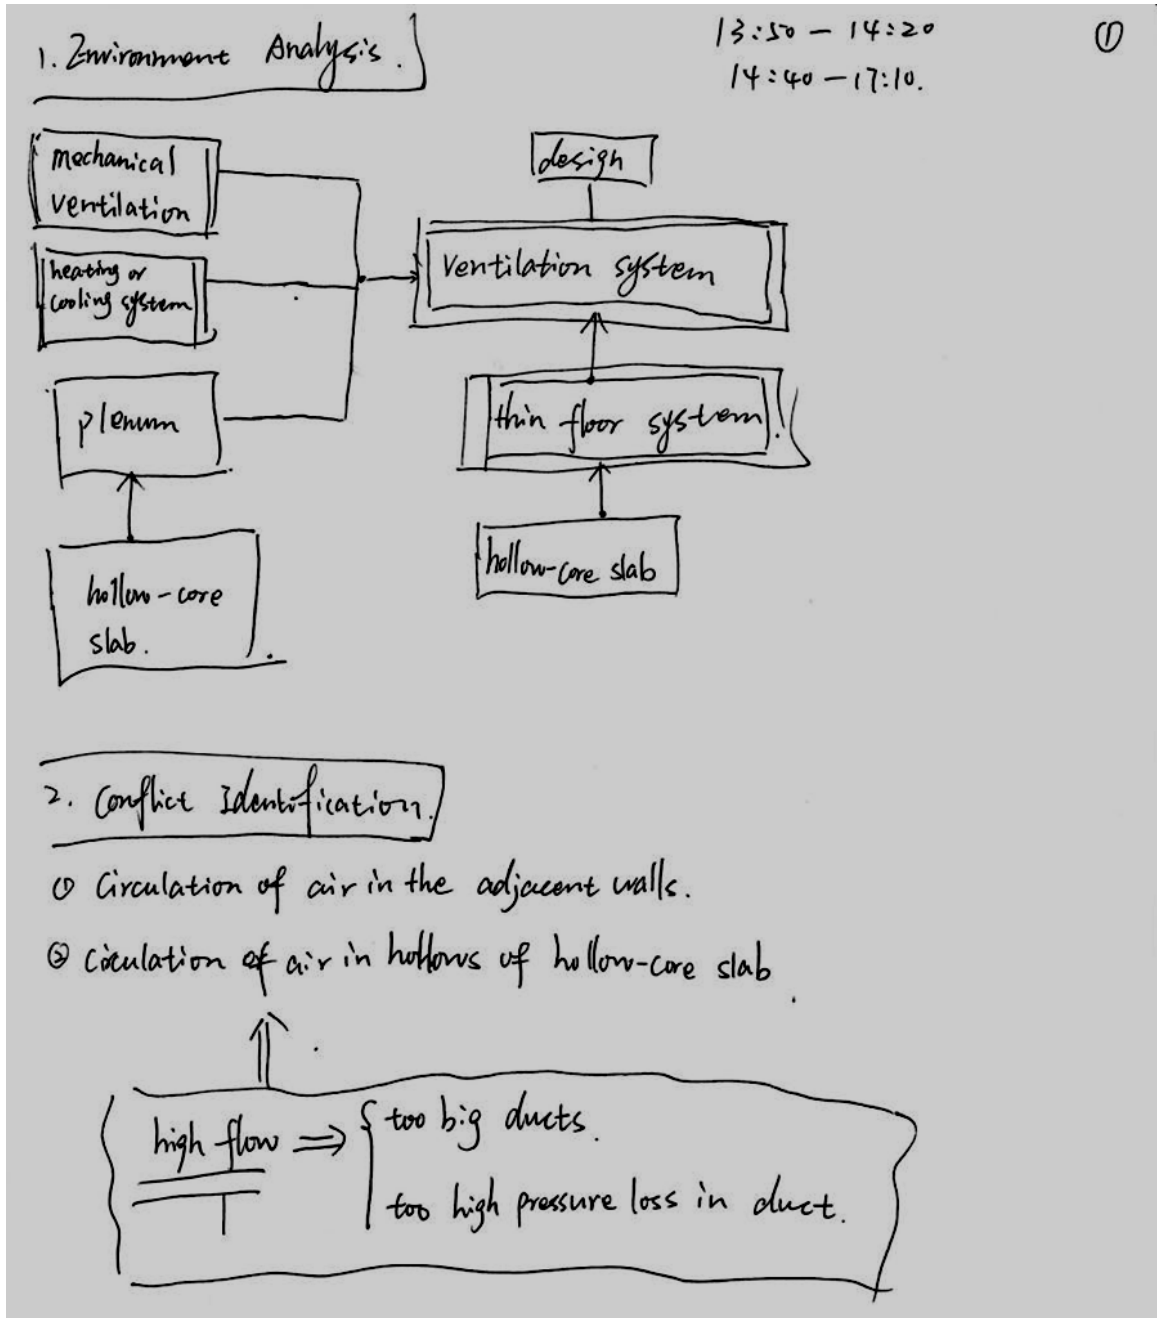 1. Environment Analysis.
13:50 – 14:20
14:40 – 17:10.
①
mechanical
ventilation
heating or
cooling system
plenum
hollow-core
slab.
design
ventilation system
thin floor system.
hollow-core slab
2. Conflict Identification.
① Circulation of air in the adjacent walls.
② Ciculation of air in hollows of hollow-core slab.
high flow ⇒ { too big ducts.
too high pressure loss in duct.